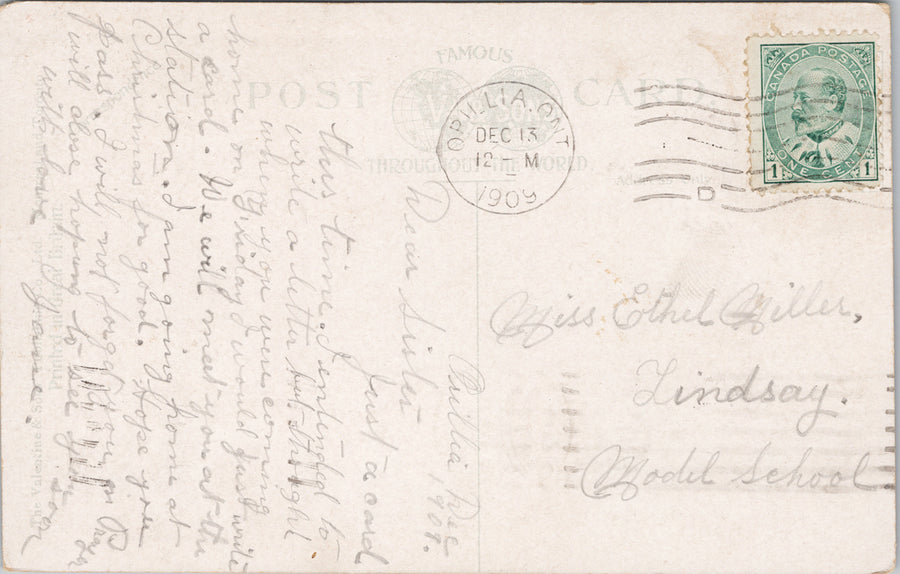 FAMOUS
POST CARD
THROUGHOUT THE WORLD
ORILLIA, ONT.
DEC 13
12 - M
1909
D
CANADA POSTAGE
ONE CENT
1 1
Miss Ethel Miller,
Lindsay.
Model School
Orillia, Dec
Dear Sister
Just a card
this time. I intend to
write a letter but thought
when you were coming
home on Friday I would just write
a card. We will meet you at the
station. I am going home at
Christmas for good. Hope you
Pass. I will not forget you in
will close hoping to see you soon
with love